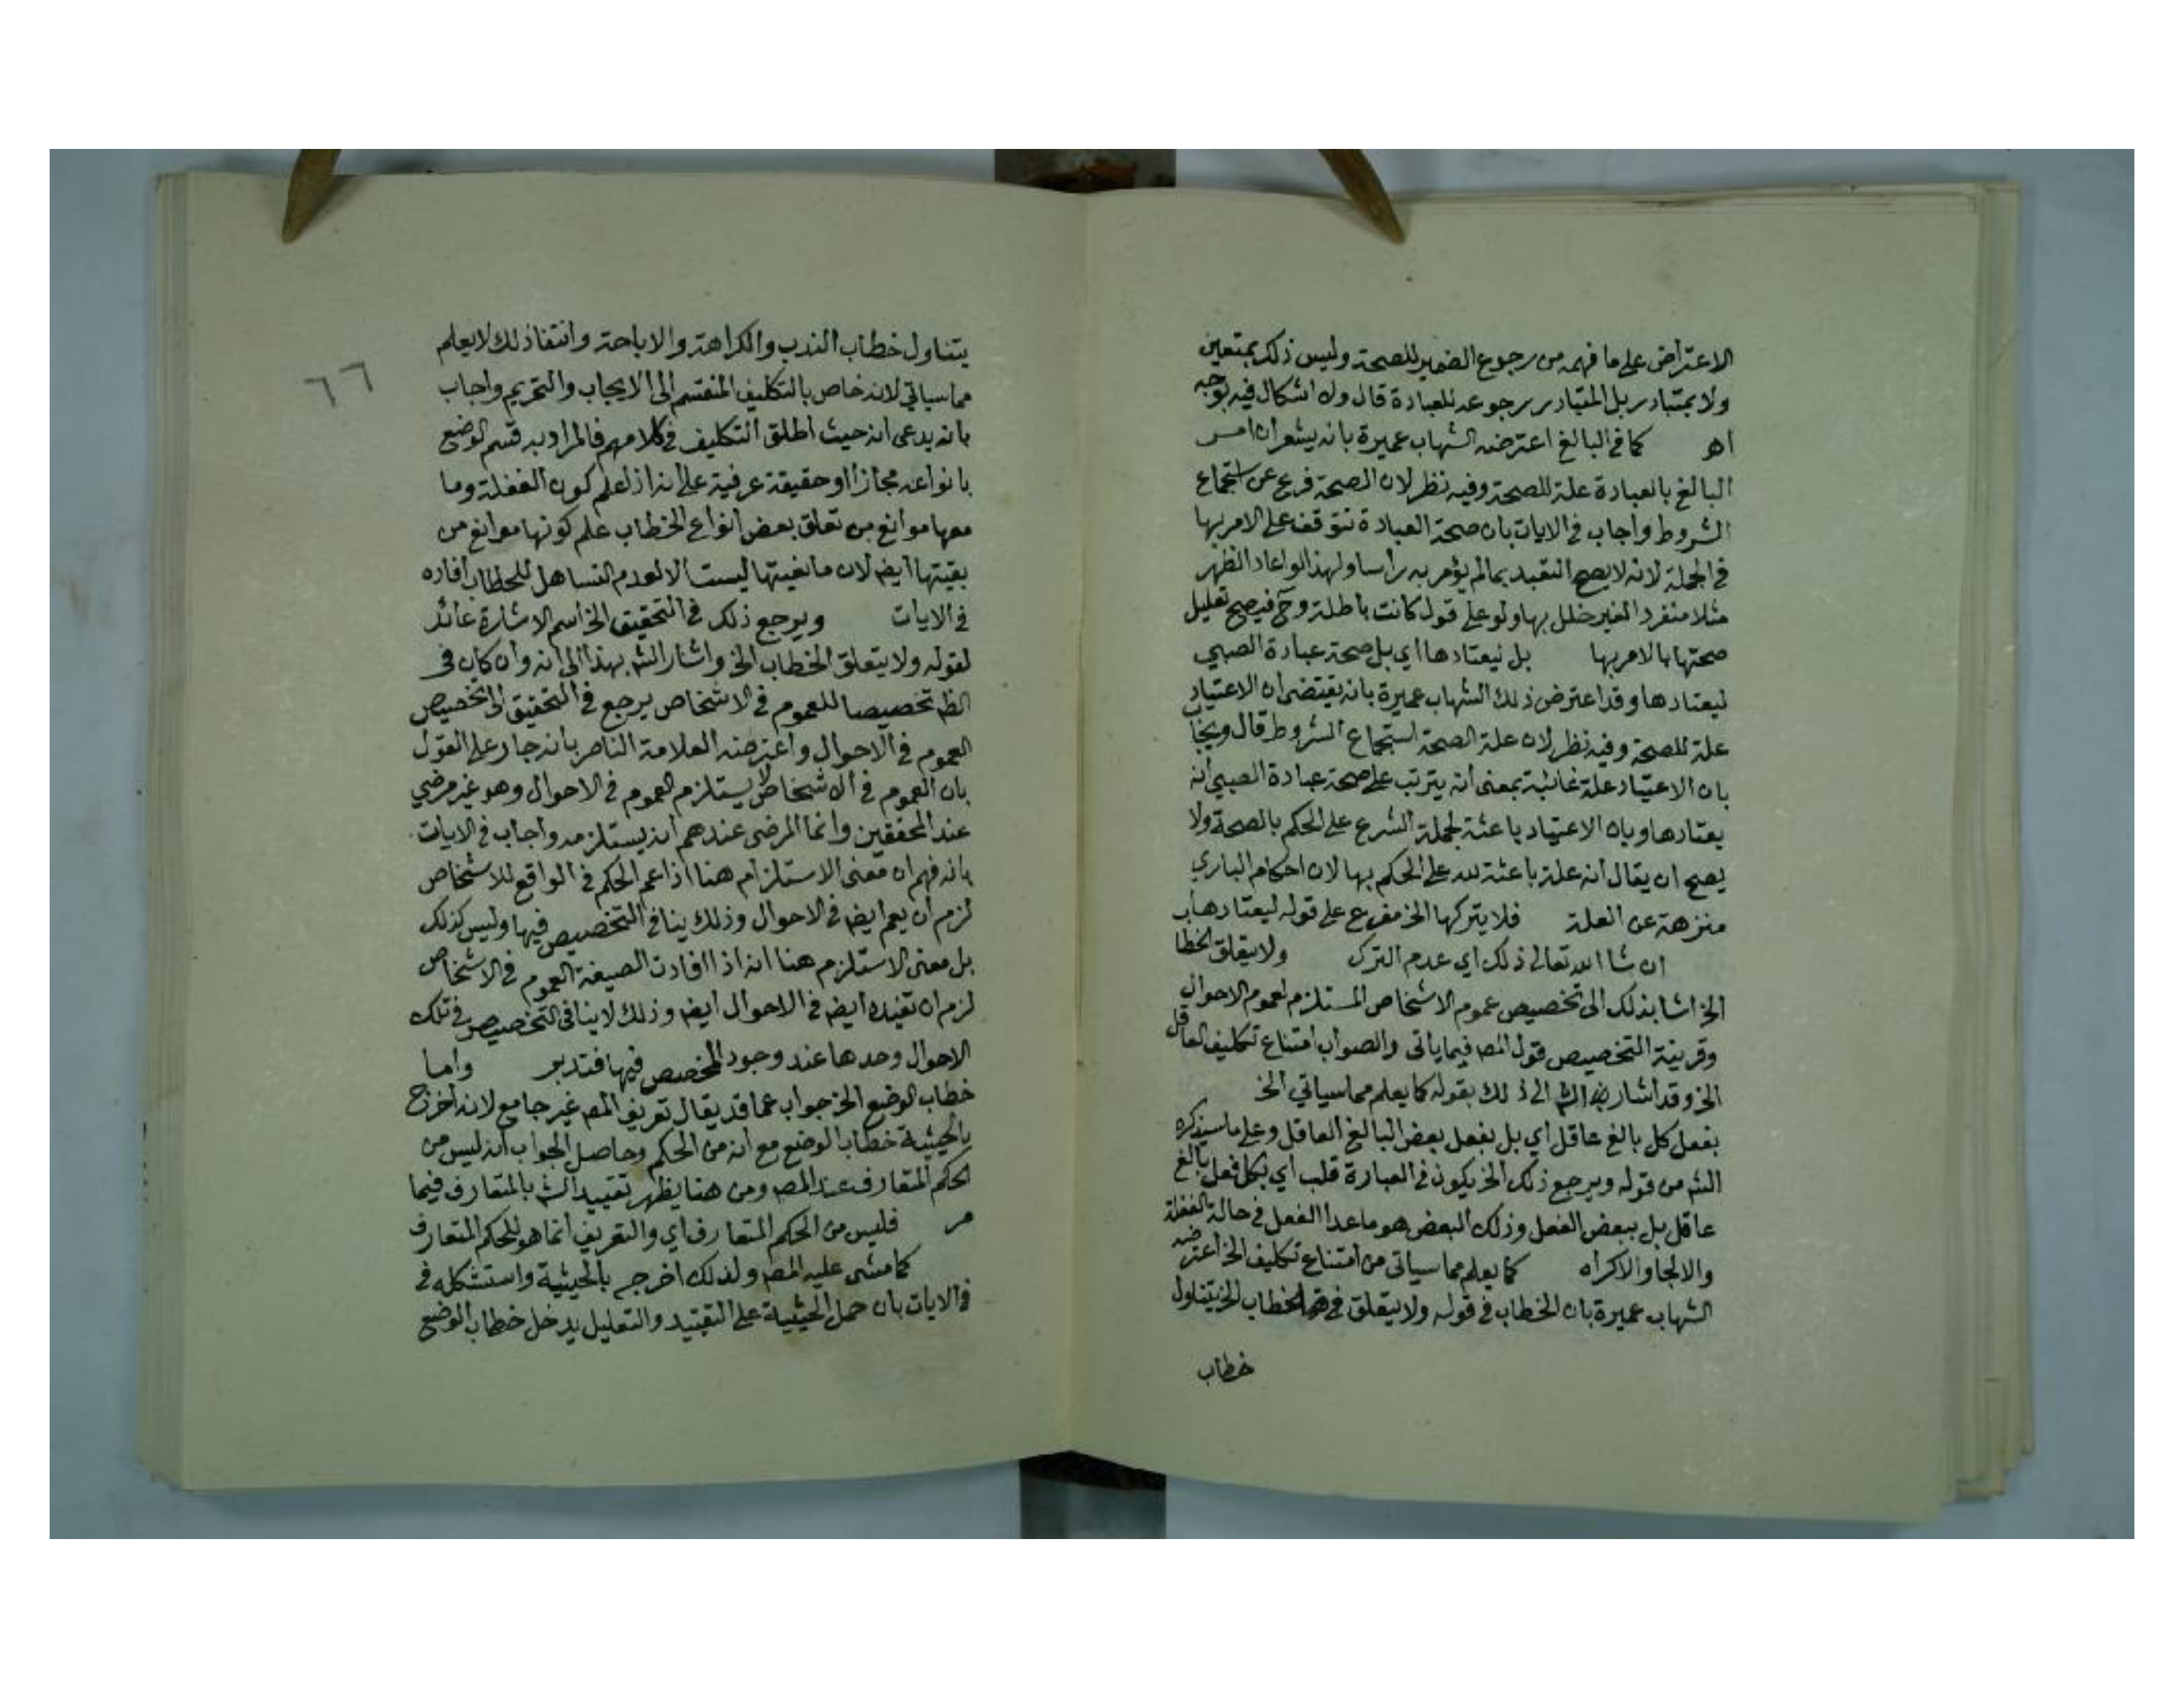 الاعتراض على ما فهمه من رجوع الضمير للصحة وليس ذلك بمتعين
ولا بمتبادر بل المتبادر رجوعه للعبادة قال ولا اشكال فيه بوجه
اه كما في البالغ اعترضه الشهاب عميرة بانه يشعر ان امر
البالغ بالعبادة علة للصحة وفيه نظر لان الصحة فرع عن استجماع
الشروط واجاب في الايات بان صحة العبادة تتوقف على الامر بها
في الجملة لانه لا يصح التعبد بما لم يؤمر به راسا ولهذا لو اعاد الظهر
مثلا منفردا لغير خلل بها ولو على قول كانت باطلة وح فيصح تعليل
صحتها بالامر بها بل ليعتادها اي بل صحة عبادة الصبي
ليعتادها وقد اعترض ذلك الشهاب عميرة بانه يقتضي ان الاعتياد
علة للصحة وفيه نظر لان علة الصحة استجماع الشروط قال ويجاب
بان الاعتياد علة غائية بمعنى انه يترتب على صحة عبادة الصبي انه
يعتادها وبان الاعتياد باعثة لحملة الشرع على الحكم بالصحة ولا
يصح ان يقال انه علة باعثة لله على الحكم بها لان احكام الباري
منزهة عن العلة فلا يتركها الخ مفرع على قوله ليعتادها
ان شا الله تعالى ذلك اي عدم الترك ولا يتعلق الخطاب
الخ اشا بذلك الى تخصيص عموم الاشخاص المستلزم لعموم الاحوال
وقرينة التخصيص قول المص فيما ياتي والصواب امتناع تكليف الغافل
الخ وقد اشار الش الى ذلك بقوله كما يعلم مما سياتي الخ
بفعل كل بالغ عاقل اي بل بفعل بعض البالغ العاقل وعلى ما سيذكره
الش من قوله ويرجع ذلك الخ يكون في العبارة قلب اي بكل فعل بالغ
عاقل بل ببعض الفعل وذلك البعض هو ما عدا الفعل في حالة الغفلة
والالجا والاكراه كما يعلم مما سياتي من امتناع تكليف الخ اعترضه
الشهاب عميرة بان الخطاب في قوله ولا يتعلق الخطاب الخ يتناول
خطاب
٦٦
يتناول خطاب الندب والكراهة والاباحة وانتفا ذلك لا يعلم
مما سياتي لانه خاص بالتكليف المنقسم الى الايجاب والتحريم واجاب
بانه يدعى انه حيث اطلق التكليف في كلامهم فالمراد به قسم الوضع
بانواعه مجازا او حقيقة عرفية على انه اذا علم كون الغفلة وما
معها موانع من تعلق بعض انواع الخطاب علم كونها موانع من
بقيتها ايض لان مانعيتها ليست الا لعدم التساهل للخطاب افاده
في الايات ويرجع ذلك في التحقيق الخ اسم الاشارة عائد
لقوله ولا يتعلق الخطاب الخ واشار الش بهذا الى انه وان كان في
الظ تخصيصا للعموم في الاشخاص يرجع في التحقيق الى تخصيص
العموم في الاحوال واعترضه العلامة الناصر بانه جار على القول
بان العموم في الاشخاص لا يستلزم العموم في الاحوال وهو غير مرضي
عند المحققين وانما المرضي عندهم انه يستلزمه واجاب في الايات
بانه فهم ان معنى الاستلزام هنا اذا عم الحكم في الواقع للاشخاص
لزم ان يعم ايض في الاحوال وذلك ينافي التخصيص فيها وليس كذلك
بل معنى الاستلزم هنا انه اذا افادت الصيغة العموم في الاشخاص
لزم ان تفيده ايض في الاحوال ايض وذلك لا ينافي التخصيص في تلك
الاحوال وحدها عند وجود المخصص فيها فتدبر واما
خطاب الوضع الخ جواب عما قد يقال تعريف المص غير جامع لانه اخرج
بالحيثية خطاب الوضع مع انه من الحكم وحاصل الجواب انه ليس من
الحكم المتعارف عند المص ومن هنا يظهر تقييد الش بالمتعارف فيما
مر فليس من الحكم المتعارف اي والتعريف انما هو للحكم المتعارف
كما مشى عليه المص ولذلك اخرجه بالحيثية واستشكله في
في الايات بان حمل الحيثية على التقييد والتعليل يدخل خطاب الوضع